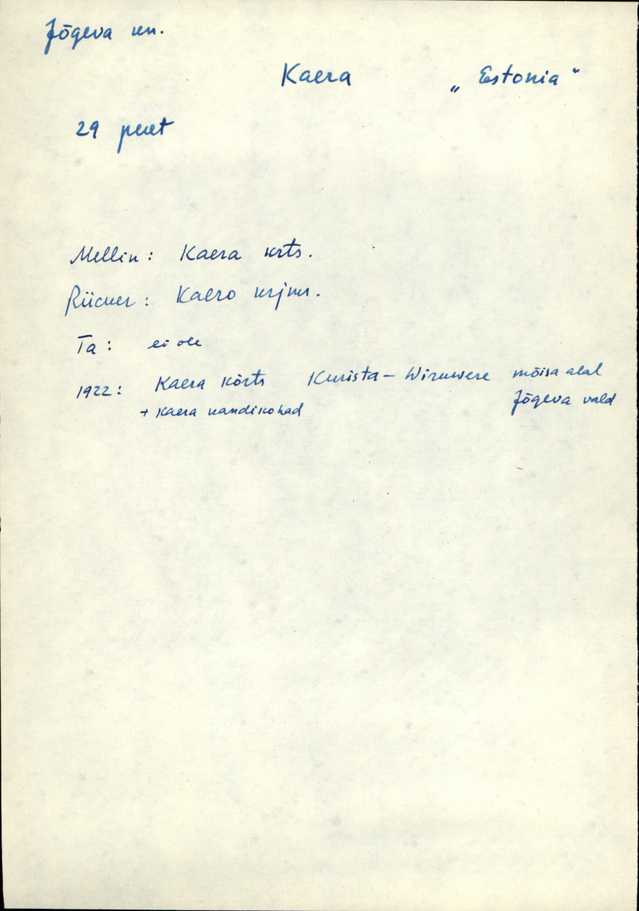 Jõgeva kn.
Kaera „Estonia“
29 peret
Mellin: Kaera krts.
Rücker: Kaero krjms.
Ta: ei ole
1922: Kaera kõrts Kurista - Wiruwere mõisa alal
+ Kaera kandikohad Jõgeva vald